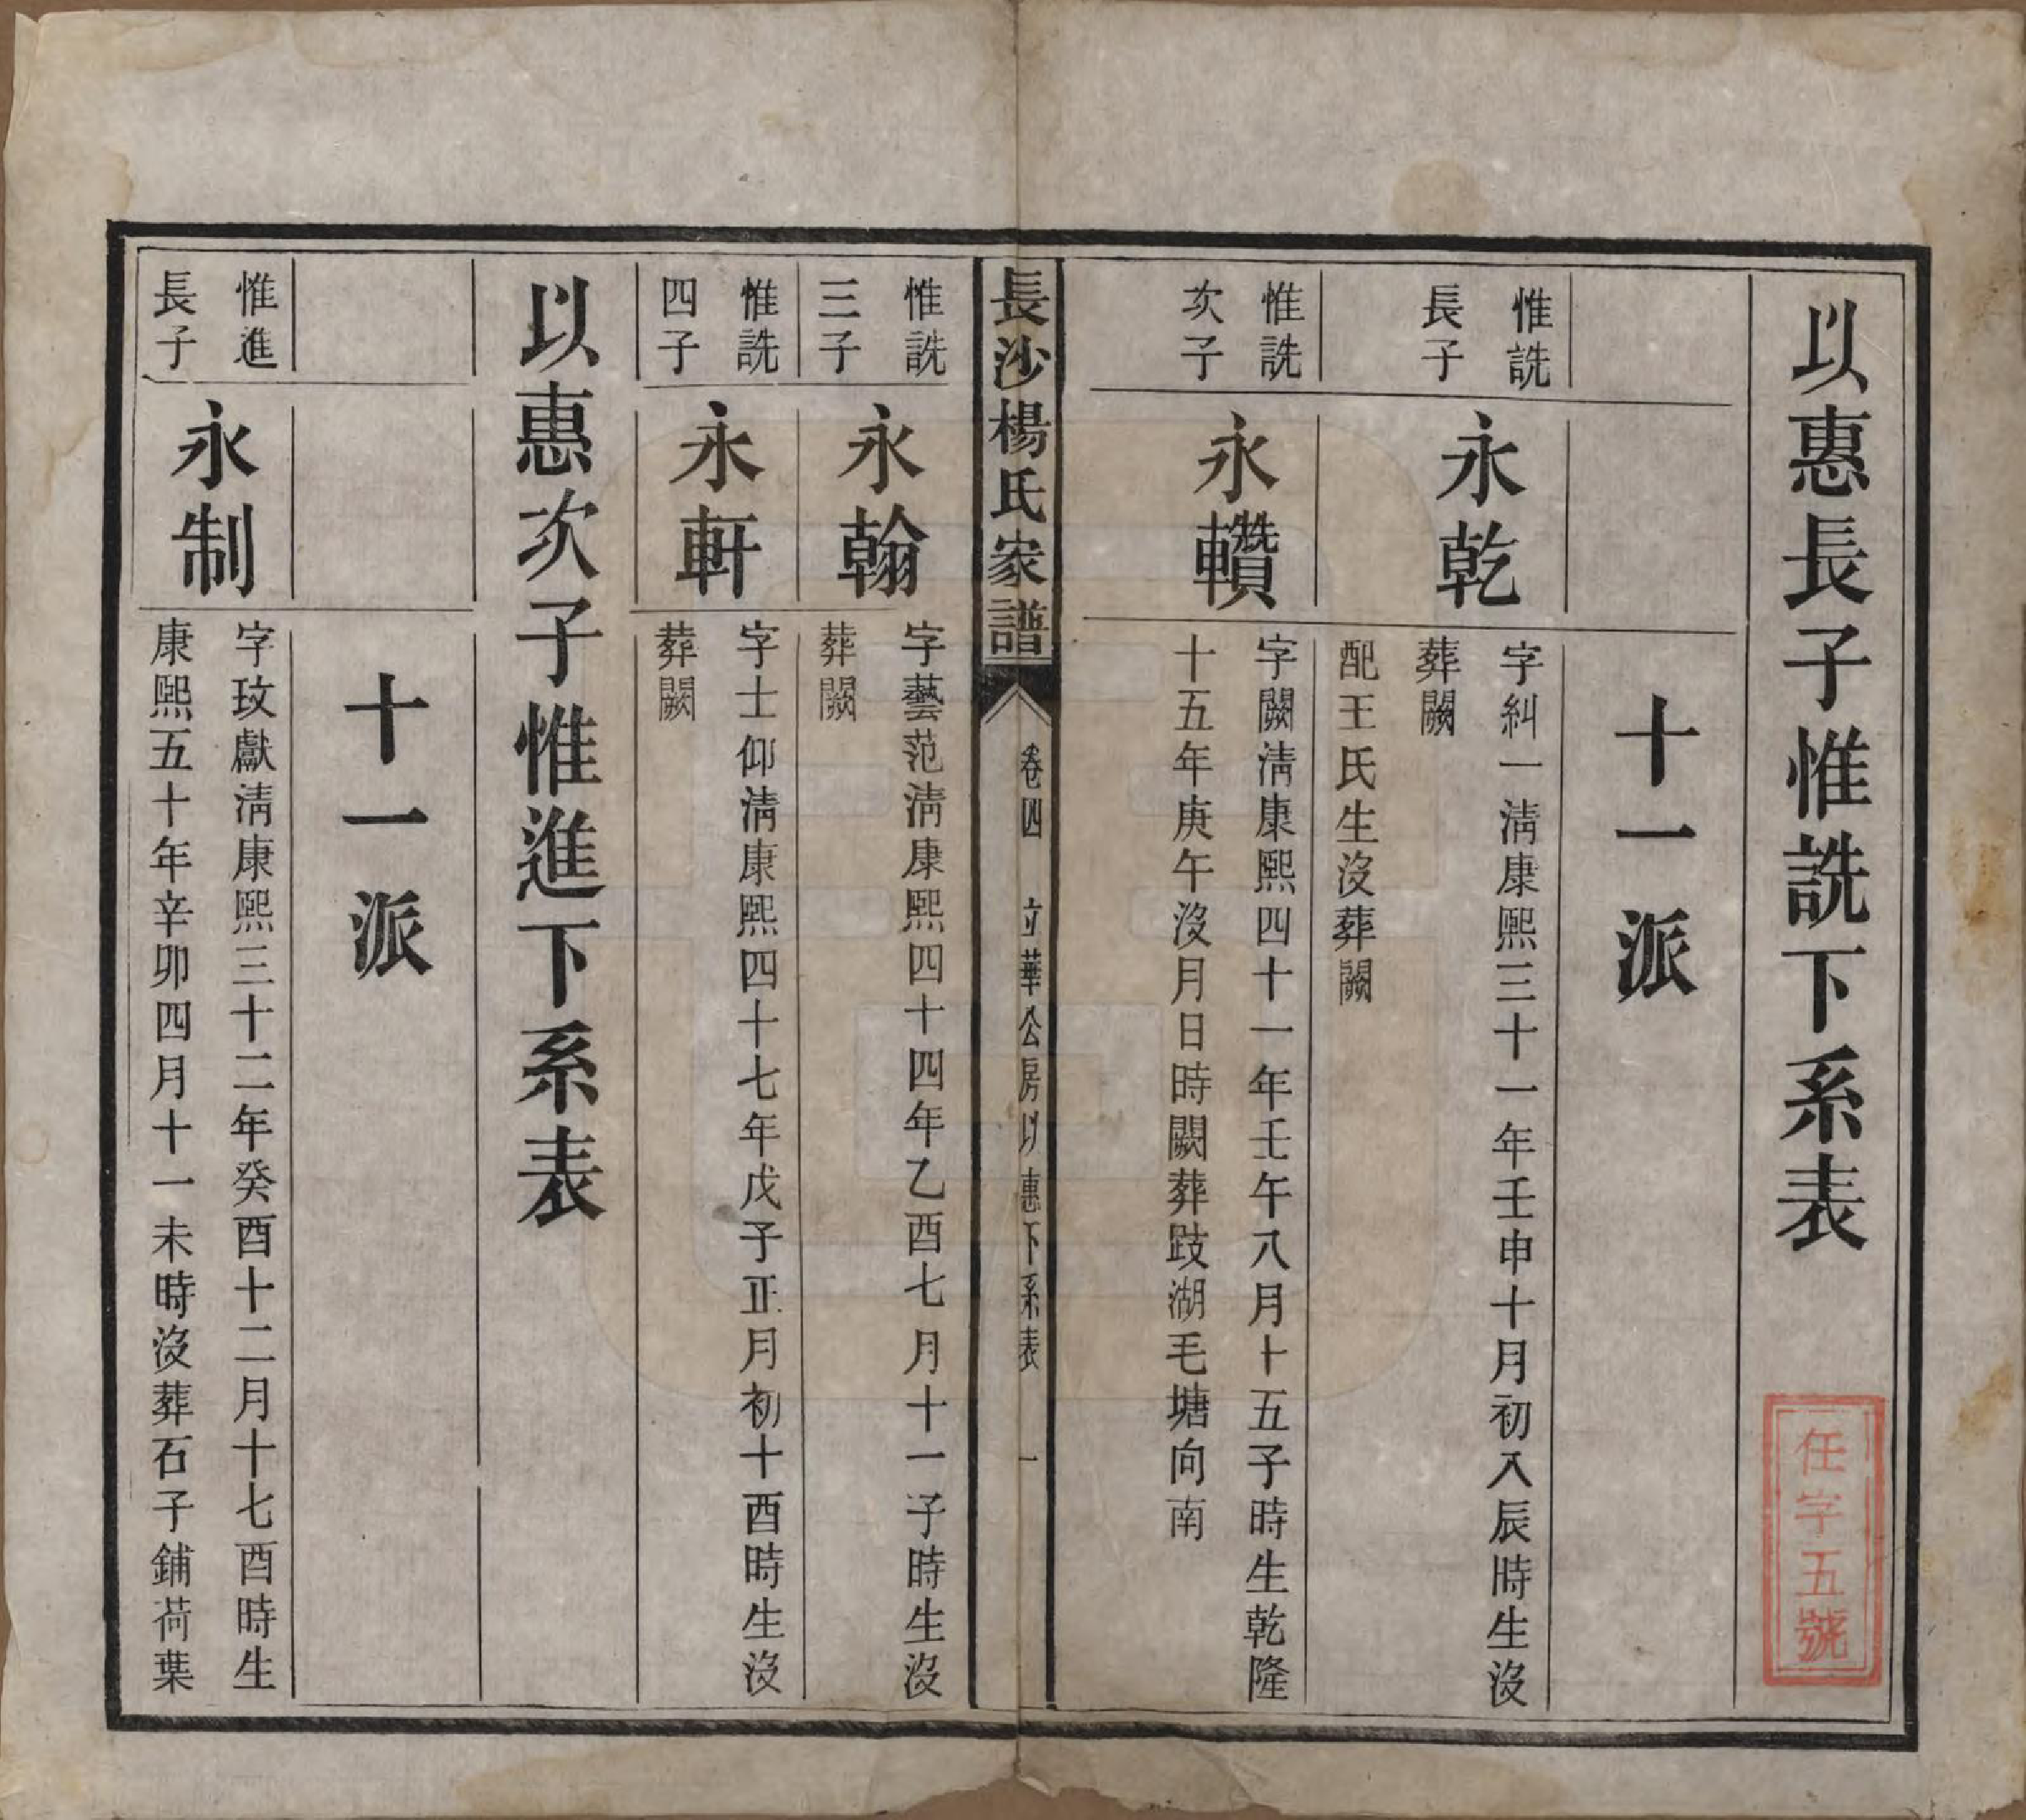 以惠長子惟詵下系表
任字五號
十一派
惟詵
長子
永乾
字糾一淸康熙三十一年壬申十月初入辰時生沒
葬闕
配王氏生沒葬闕
惟詵
次子
永䡽
字闕淸康熙四十一年壬午八月十五子時生乾隆
十五年庚午沒月日時闕葬跂湖毛塘向南
長沙楊氏家譜
卷四
立華公房以惠下系表
一
惟詵
三子
永翰
字藝范淸康熙四十四年乙酉七月十一子時生沒
葬闕
惟詵
四子
永軒
字士仰淸康熙四十七年戊子正月初十酉時生沒
葬闕
以惠次子惟進下系表
十一派
惟進
長子
永制
字玟獻淸康熙三十二年癸酉十二月十七酉時生
康熙五十年辛卯四月十一未時沒葬石子鋪荷葉